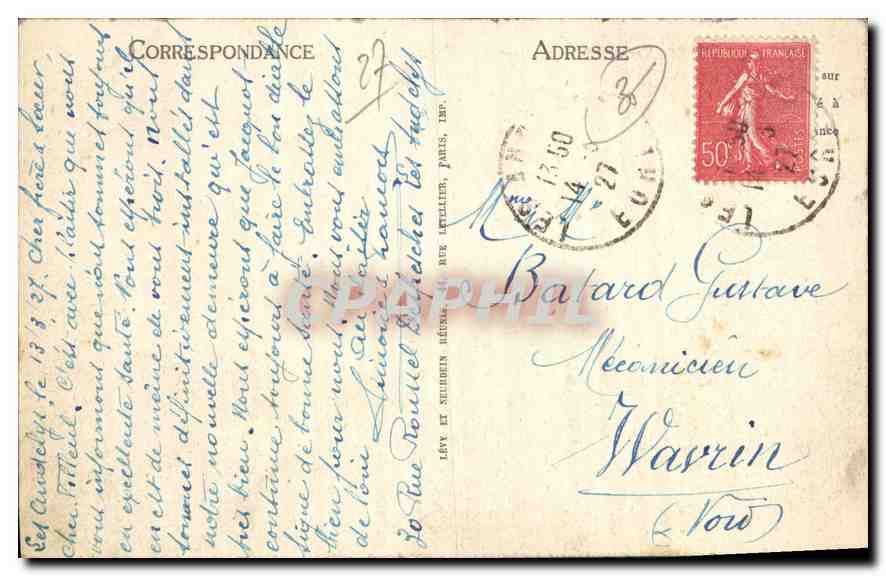 CORRESPONDANCE
27
Les Andelys, le 13.3.27. Cher frère, sœur,
cher filleul. C'est avec plaisir que nous
vous informons que nous sommes toujours
en excellente santé. Nous espérons qu'il
en est de même de vous trois. Nous
sommes définitivement installés dans
notre nouvelle demeure qui est
très bien. Nous espérons que Jacquot
continue toujours à faire le bon diable
signe de bonne santé. Embrassez le
bien pour nous. Nous vous embrassons
de loin
30 Rue Roussel Despierches Les Andelys
LÉVY ET NEURDEIN RÉUNIS, RUE LETELLIER, PARIS, IMP.
ADRESSE
30
sur
é à
ance
RÉPUBLIQUE FRANÇAISE
50
POSTES
13 50
14
27
EURE
LES
EURE
Mme Mr
Batard Gustave
Mécanicien
Wavrin
(Nord)
CPAPHIL